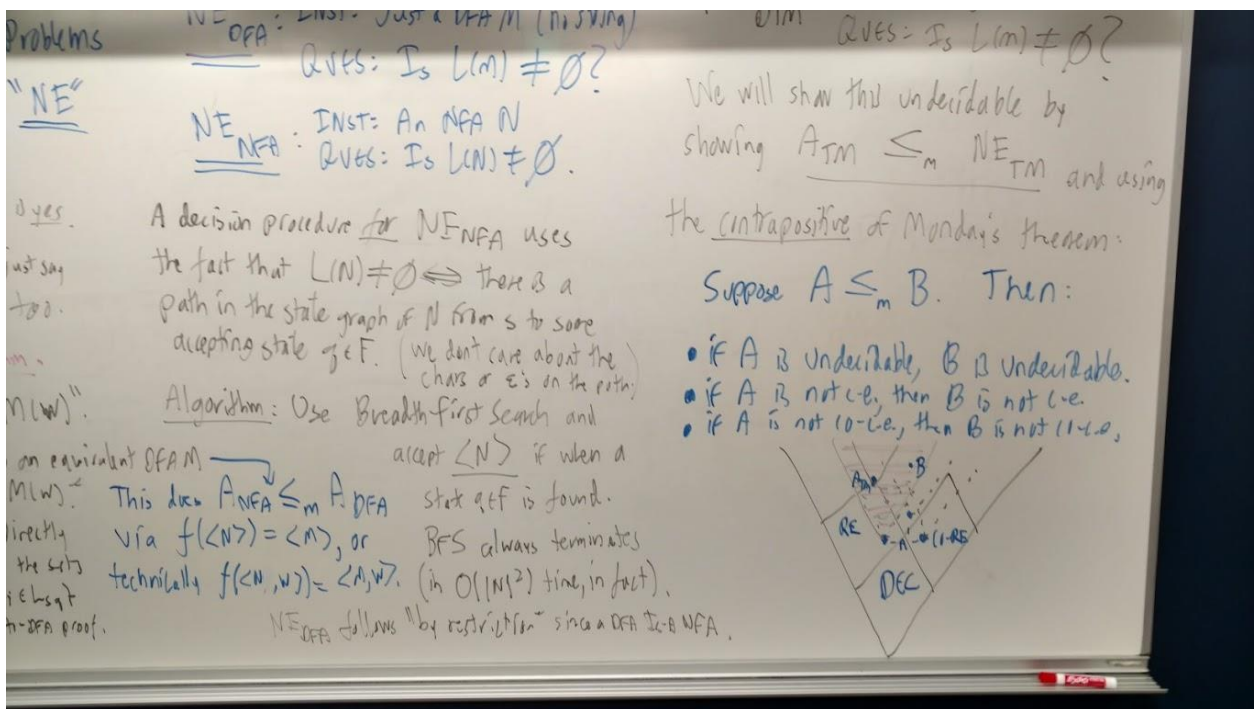 Problems
"NE"
NE DFA : INST: Just a DFA M (no string)
QUES: Is L(M) ≠ ∅?
NE NFA : INST: An NFA N
QUES: Is L(N) ≠ ∅.
A decision procedure for NE NFA uses
the fact that L(N) ≠ ∅ ⟺ there is a
path in the state graph of N from s to some
accepting state q ∈ F. (We don't care about the
chars or ε's on the path)
Algorithm: Use Breadth-First Search and
accept <N> if when a
state q∈F is found.
BFS always terminates
(in O(|N|²) time, in fact).
NE DFA follows "by restriction" since a DFA Is-A NFA.
yes.
just say
too.
M(w)".
an equivalent DFA M
M(w)."
directly
the sets
proof.
This does A NFA ≤m A DFA
via f(<N>) = <M>, or
technically f(<N,w>) = <M,w>.
QUES: Is L(M) ≠ ∅?
We will show this undecidable by
showing A TM ≤m NE TM and using
the contrapositive of Monday's theorem:
Suppose A ≤m B. Then:
• if A is undecidable, B is undecidable.
• if A is not c.e., then B is not c.e.
• if A is not co-c.e., then B is not co-c.e.
•B
RE
A
co-RE
DEC
EXPO